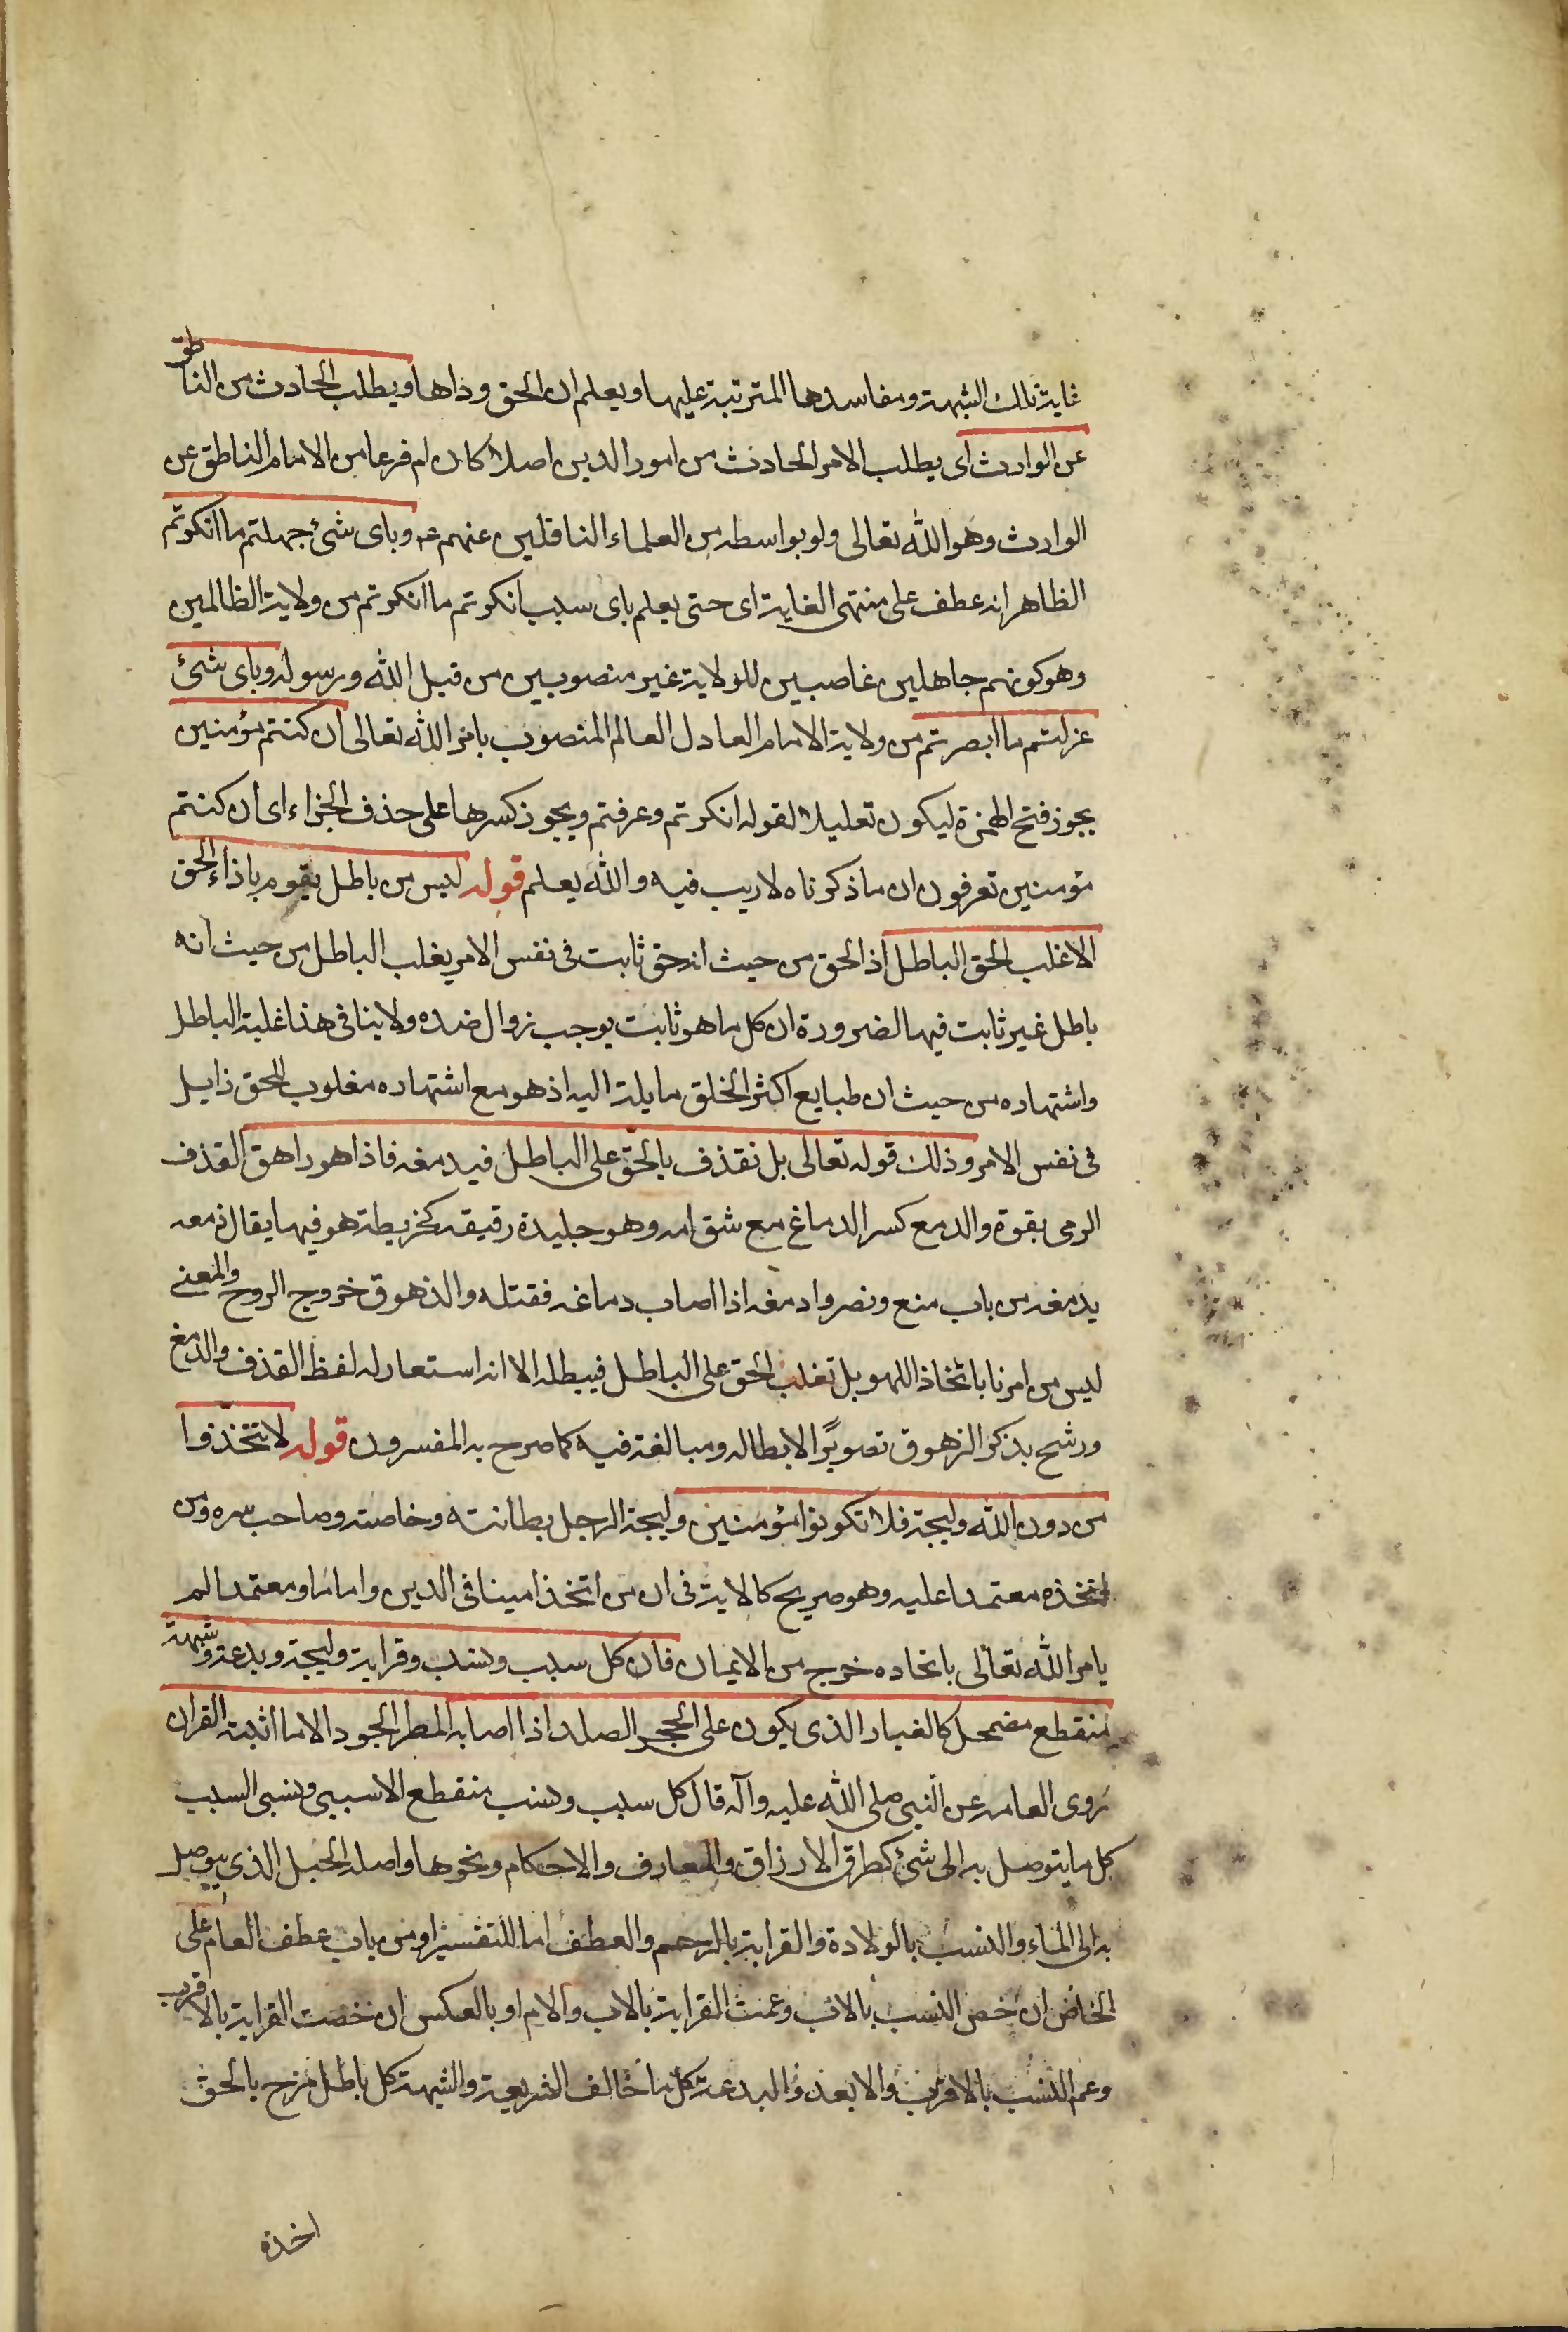 غاية تلك الشبهة ومفاسدها المترتبة عليها ويعلم ان الحق وذاها ويطلب الحادث من الناطق
عن الوارث اى يطلب الامر الحادث من امور الدين اصلا كان ام فرعا من الامام الناطق عن
الوارث وهو الله تعالى ولو بواسطه من العلماء الناقلين عنهم عم وباى شئ جهلتم ما انكرتم
الظاهر انه عطف على منتهى الغاية اى حتى يعلم باى سبب انكرتم ما انكرتم من ولاية الظالمين
وهو كونهم جاهلين غاصبين للولاية غير منصوبين من قبل الله ورسوله وباى شئ
عزلتم ما ابصرتم من ولاية الامام العادل العالم المنصوب بامر الله تعالى ان كنتم مؤمنين
يجوز فتح الهمزة ليكون تعليلا لقوله انكرتم وعرفتم ويجوز كسرها على حذف الجزاء اى ان كنتم
مؤمنين تعرفون ان ما ذكرناه لا ريب فيه والله يعلم قوله ليس من باطل يقوم باذاء الحق
الا غلب الحق الباطل اذ الحق من حيث انه حق ثابت فى نفس الامر يغلب الباطل من حيث انه
باطل غير ثابت فيها لضرورة ان كل ما هو ثابت يوجب زوال ضده ولا ينافى هذا غلبة الباطل
واشتهاره من حيث ان طبايع اكثر الخلق مايلة اليه اذ هو مع اشتهاره مغلوب للحق زايل
فى نفس الامر وذلك قوله تعالى بل نقذف بالحق على الباطل فيدمغه فاذا هو زاهق القذف
الرمى بقوة والدمغ كسر الدماغ مع شق امه وهو جليدة رقيقه كخريطة هو فيها يقال دمغه
يدمغه من باب منع ونصر وادمغه اذا اصاب دماغه فقتله والزهوق خروج الروح والمعنى
ليس من امرنا باتخاذ اللهو بل تغلب الحق على الباطل فيبطله الا انه استعار له لفظ القذف والدمغ
ورشح بذكر الزهوق تصويرًا لابطاله ومبالغة فيه كما صرح به المفسرون قوله لا تتخذوا
من دون الله وليجة فلا تكونوا مؤمنين وليجة الرجل بطانته وخاصته وصاحب سره ومن
اتخذه معتمدا عليه وهو صريح كالاية فى ان من اتخذ امينا فى الدين واماما ومعتمدا لم
يامر الله تعالى باتخاذه خرج من الايمان فان كل سبب ونسب وقرابة وليجة وبدعة وشبهة
منقطع مضمحل كالغبار الذى يكون على الحجر الصلد اذا اصابه المطر الجود الا ما اثبته القران
روى العامه عن النبى صلى الله عليه وآله قال كل سبب ونسب منقطع الا سببى ونسبى السبب
كل ما يتوصل به الى شئ كطرق الارزاق والمعارف والاحكام ونحوها واصله الحبل الذى يتوصل
به الى الماء والنسب بالولادة والقرابة بالرحم والعطف اما للتفسير او من باب عطف العام على
الخاص ان خص النسب بالاب وعمت القرابة بالاب والام او بالعكس ان خصت القرابة بالاقرب
وعم النسب بالاقرب والابعد والبدعة كل ما خالف الشريعة والشبهة كل باطل مزج بالحق
اخذه